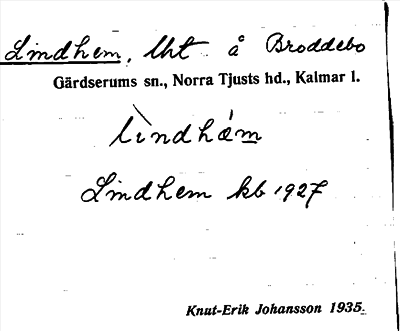 Lindhem, lht å Broddebo
Gärdserums sn., Norra Tjusts hd., Kalmar l.
lìndhǽm
Lindhem kb 1927
Knut-Erik Johansson 1935.